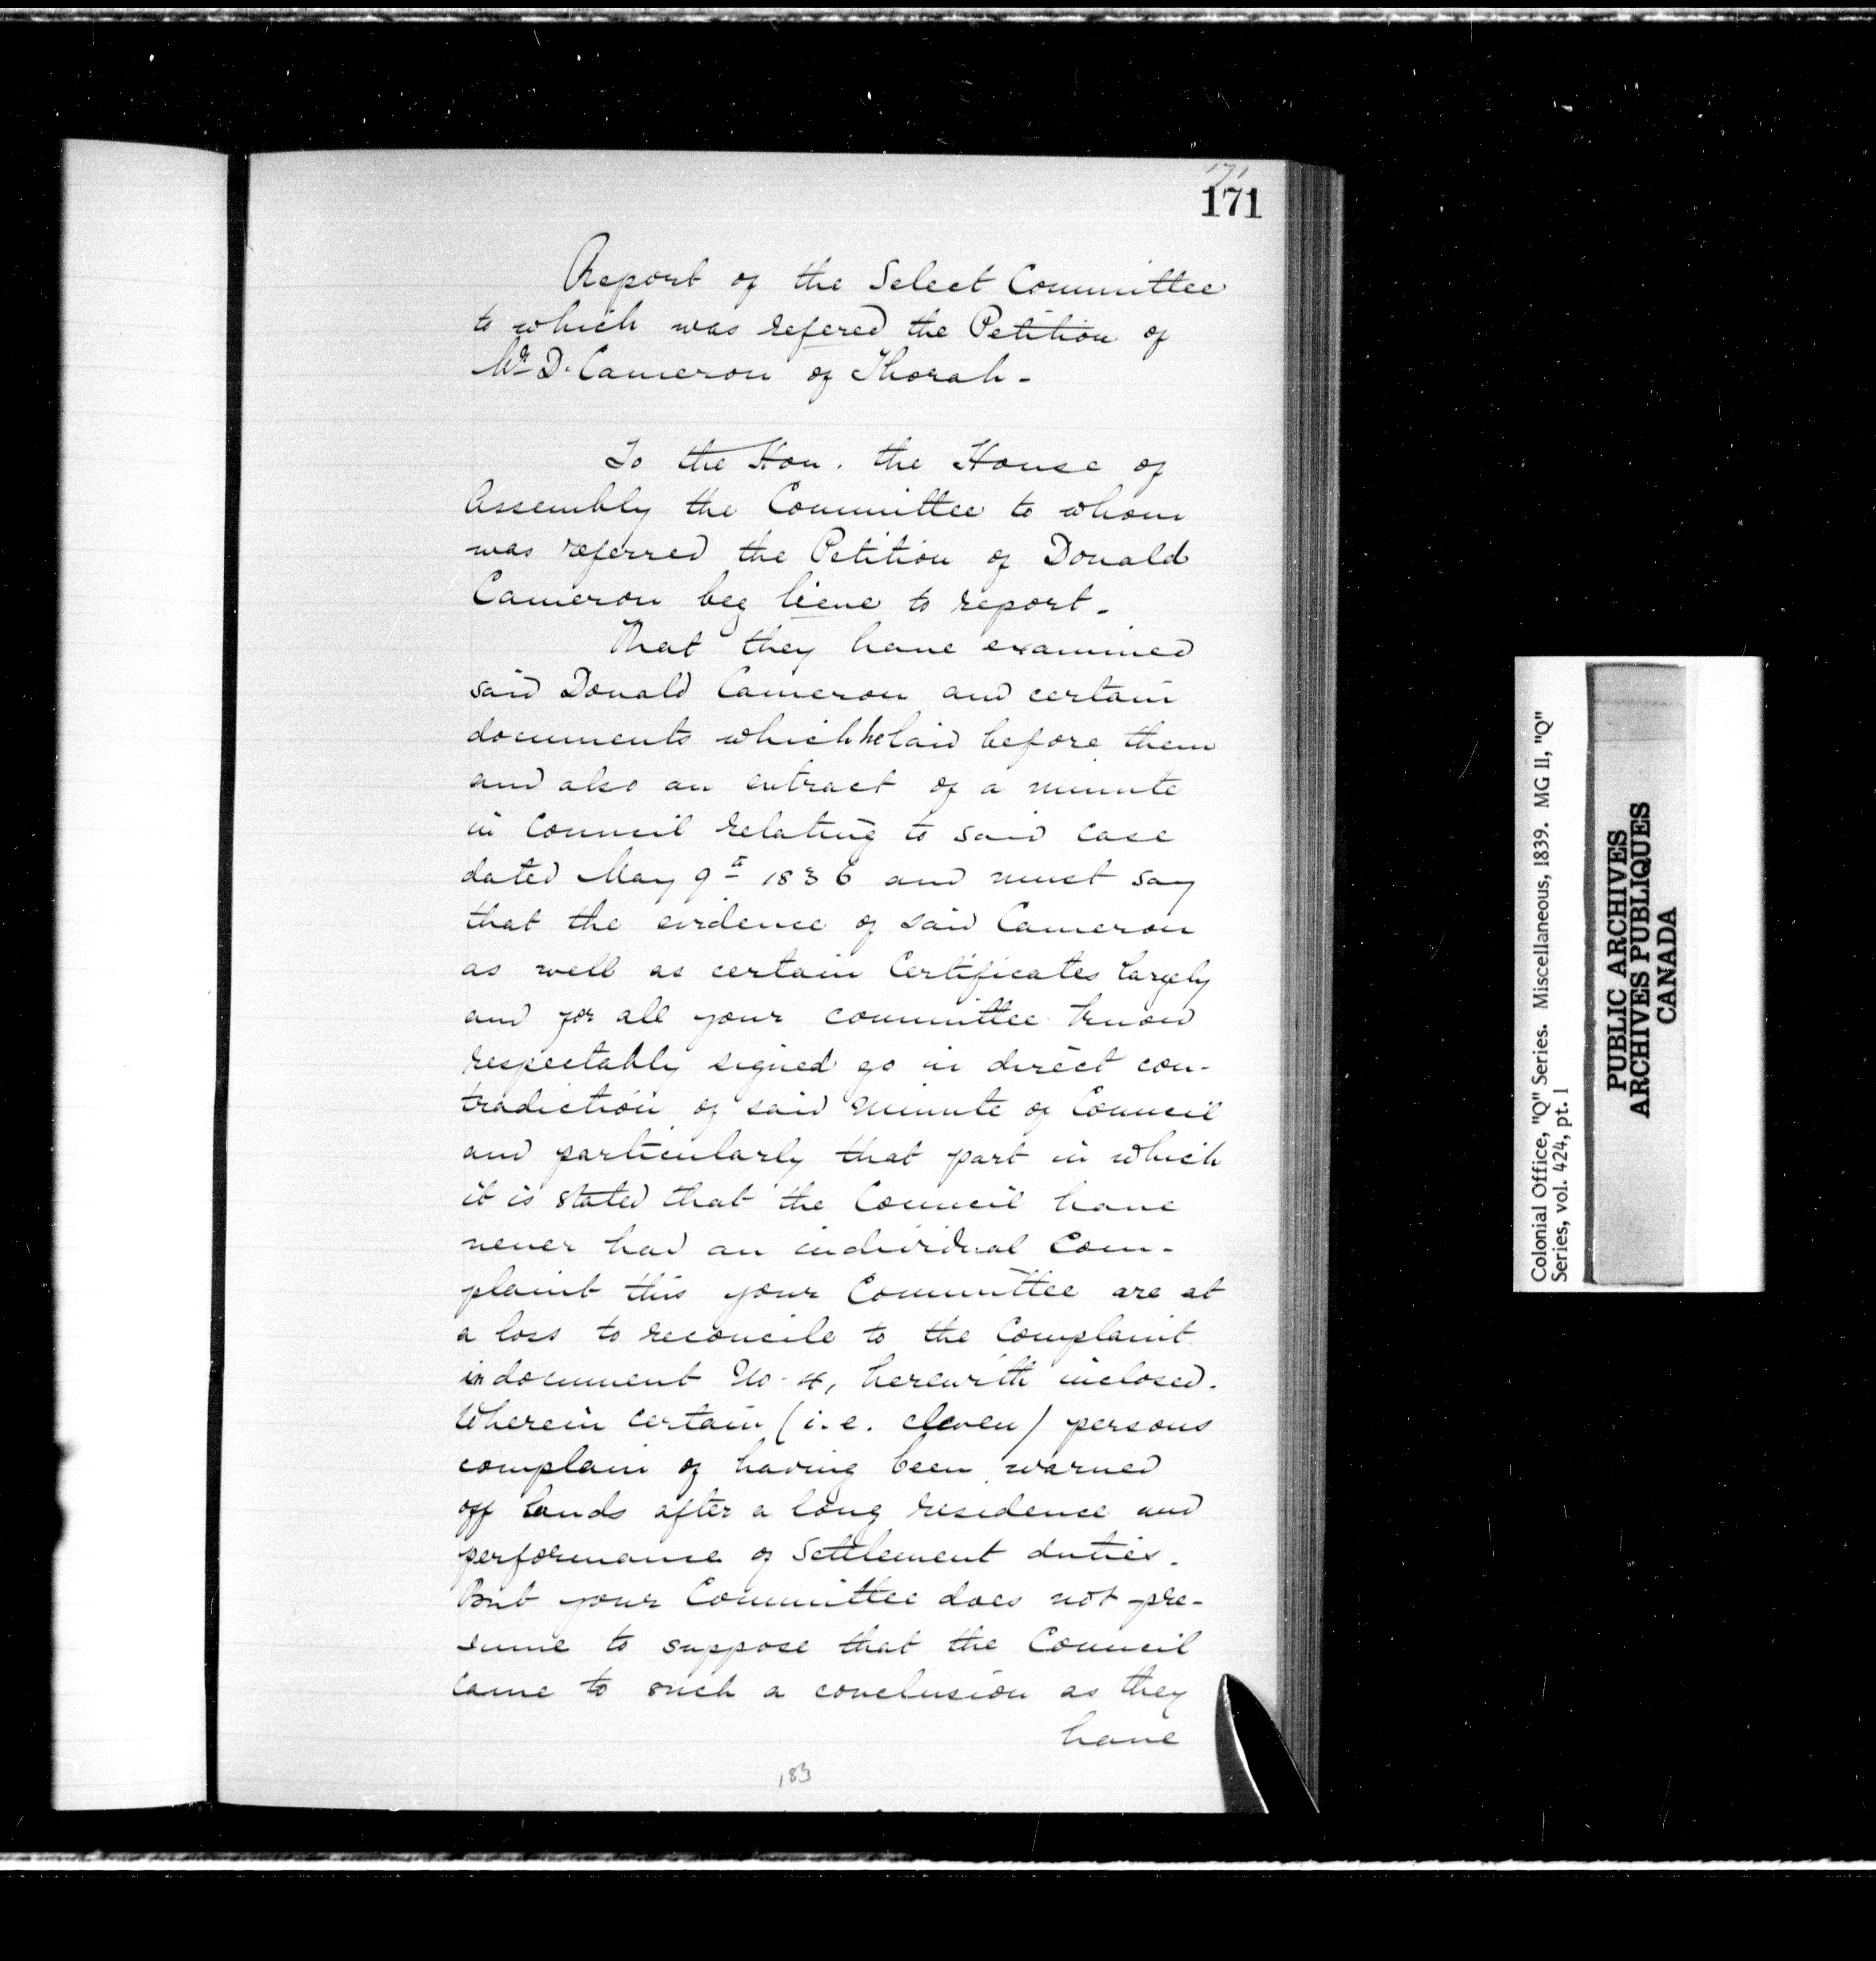 171
171
Report of the Select Committee
to which was refered the Petition of
Mr D. Cameron of Thorah -
To the Hon. the House of
Assembly the Committee to whom
was referred the Petition of Donald
Cameron beg lieve to report -
That they have examined
said Donald Cameron and certain
documents which he laid before them
and also an extract of a minute
in Council relating to said case
dated May 9th 1836 and must say
that the evidence of said Cameron
as well as certain Certificates largely
and for all your committee know
respectably signed go in direct con-
tradiction of said minute of Council
and particularly that part in which
it is stated that the Council have
never had an individual Com-
plaint this your Committee are at
a loss to reconcile to the Complaint
in document No. 4, herewith inclosed.
Wherein certain (i.e. eleven) persons
complain of having been warned
off lands after a long residence and
performance of Settlement duties.
But your Committee does not pre-
sume to suppose that the Council
came to such a conclusion as they
have
183
Colonial Office, "Q" Series. Miscellaneous, 1839. MG 11, "Q"
Series, vol. 424, pt. 1
PUBLIC ARCHIVES
ARCHIVES PUBLIQUES
CANADA